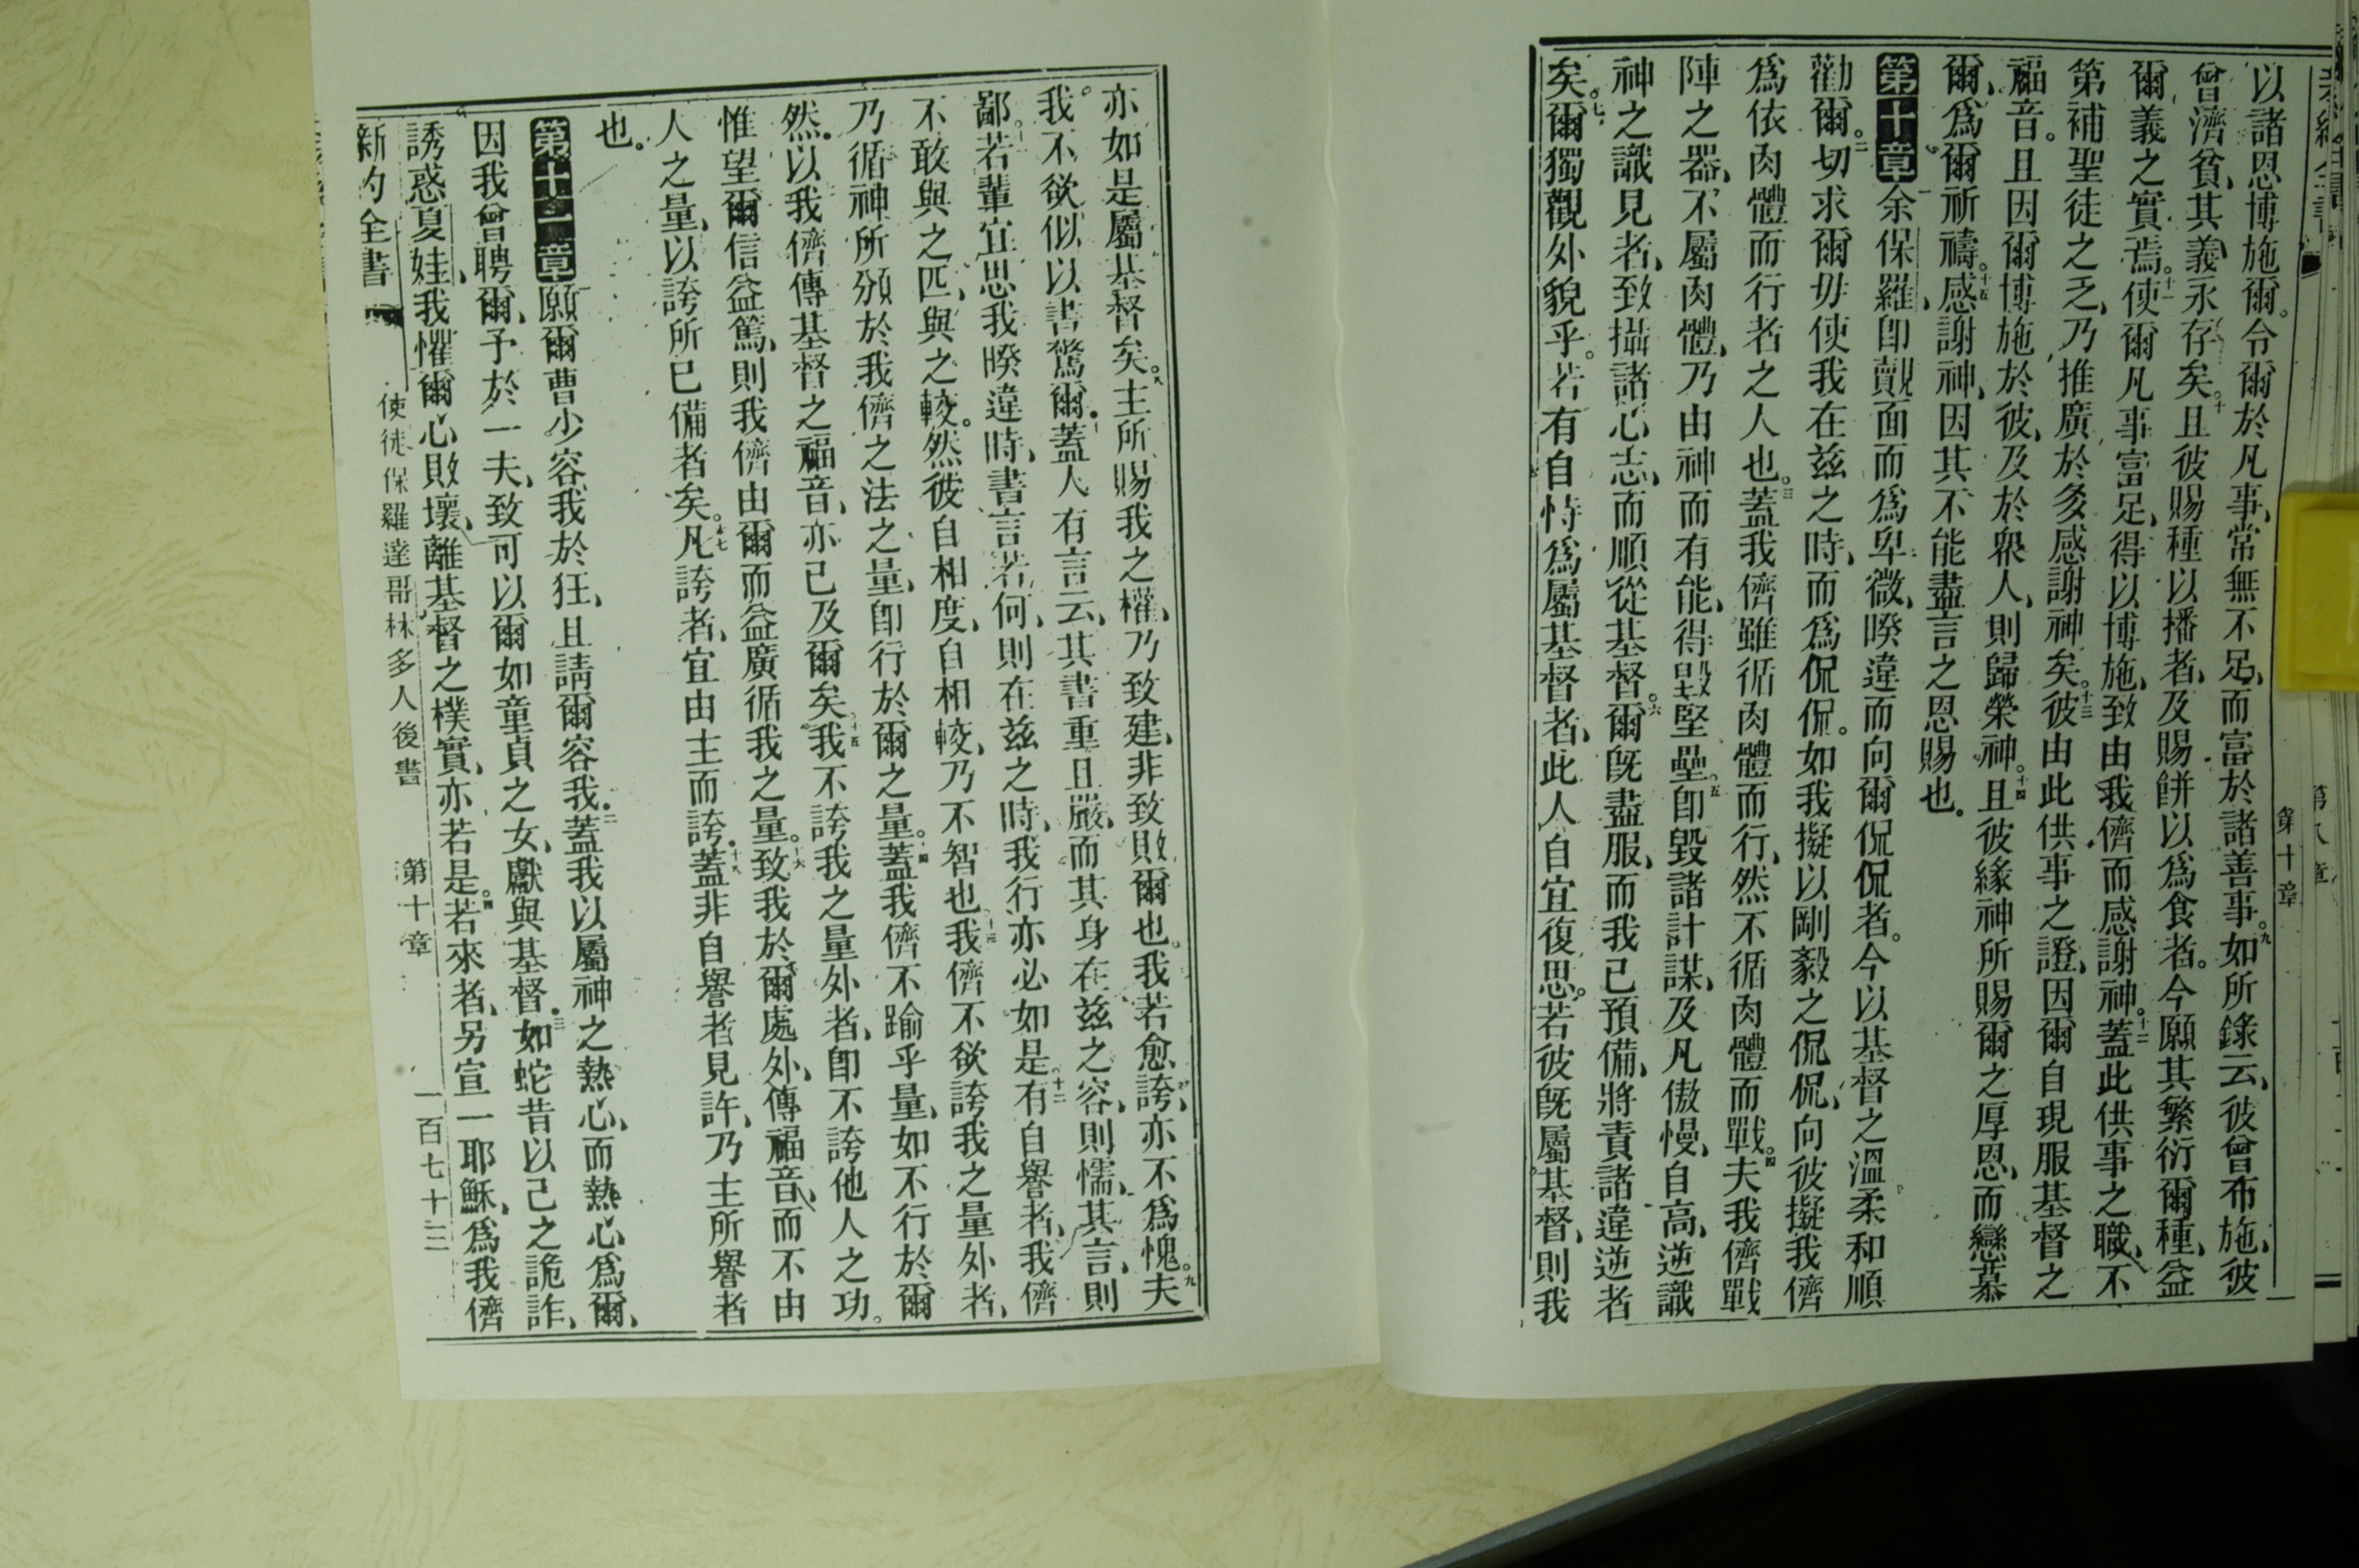 第十章
以諸恩博施爾。令爾於凡事、常無不足、而富於諸善事。九如所錄云、彼曾布施、彼
曾濟貧、其義永存矣。十且彼賜種以播者、及賜餅以爲食者。今願其繁衍爾種、益
爾義之實焉。十一使爾凡事富足、得以博施、致由我儕而感謝神。十二蓋此供事之職、不
第補聖徒之乏、乃推廣於多感謝神矣。十三彼由此供事之證、因爾自現服基督之
福音。且因爾博施於彼、及於衆人、則歸榮神。十四且彼緣神所賜爾之厚恩、而戀慕
爾、爲爾祈禱。十五感謝神、因其不能盡言之恩賜也。
第十章一余保羅、卽覿面而爲卑微、暌違而向爾侃侃者。今以基督之溫柔和順
勸爾。二切求爾毋使我在茲之時、而爲侃侃。如我擬以剛毅之侃侃、向彼擬我儕
爲依肉體而行者之人也。三蓋我儕雖循肉體而行、然不循肉體而戰。四夫我儕戰
陣之器、不屬肉體、乃由神而有能、得毀堅壘。五卽毀諸計謀、及凡傲慢、自高、逆識
神之識見者、致攝諸心志、而順從基督。六爾旣盡服、而我已預備、將責諸違逆者
矣。七爾獨觀外貌乎。若有自恃爲屬基督者、此人自宜復思。若彼旣屬基督、則我
亦如是屬基督矣。八主所賜我之權、乃致建、非致敗爾也。我若愈誇、亦不爲愧。九夫
我不欲似以書驚爾。十蓋人有言云、其書重且嚴、而其身在茲之容、則懦、其言、則
鄙。十一若輩宜思我暌違時、書言若何、則在茲之時、我行亦必如是。十二有自譽者、我儕
不敢與之匹、與之較。然彼自相度、自相較、乃不智也。十三我儕不欲誇我之量外者、
乃循神所頒於我儕之法之量、卽行於爾之量。十四蓋我儕不踰乎量、如不行於爾
然。以我儕傳基督之福音、亦已及爾矣。十五我不誇我之量外者、卽不誇他人之功。
惟望爾信益篤、則我儕由爾而益廣循我之量。十六致我於爾處外、傳福音、而不由
人之量、以誇所已備者矣。十七凡誇者、宜由主而誇。十八蓋非自譽者見許、乃主所譽者
也。
第十一章一願爾曹少容我於狂、且請爾容我。二蓋我以屬神之熱心、而熱心爲爾、
因我曾聘爾、予於一夫、致可以爾如童貞之女、獻與基督。三如蛇昔以己之詭詐、
誘惑夏娃、我懼爾心敗壞、離基督之樸實、亦若是。四若來者、另宣一耶穌、爲我儕
新約全書 使徒保羅達哥林多人後書 第十章 一百七十三